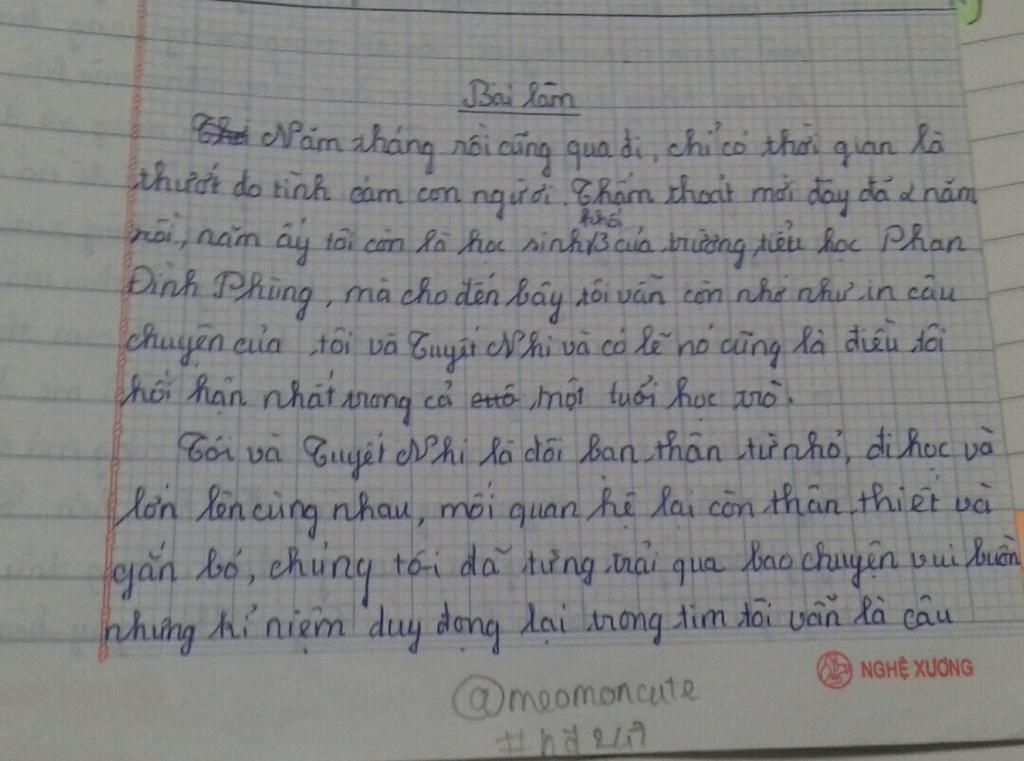 Bài làm
Năm tháng rồi cũng qua đi, chỉ có thời gian là
thước đo tình cảm con người. Thấm thoát mới đây đã 2 năm
rồi, năm ấy tôi còn là học sinh khối 3 của trường tiểu học Phan
Đình Phùng, mà cho đến bây tôi vẫn còn nhớ như in câu
chuyện của tôi và Tuyết Nhi và có lẽ nó cũng là điều tôi
hối hận nhất trong cả một tuổi học trò.
Tôi và Tuyết Nhi là đôi bạn thân từ nhỏ, đi học và
lớn lên cùng nhau, mối quan hệ lại còn thân thiết và
gắn bó, chúng tôi đã từng trải qua bao chuyện vui buồn
nhưng kỉ niệm duy đọng lại trong tim tôi vẫn là câu
NGHỆ XƯƠNG
@meomoncute
#hd247